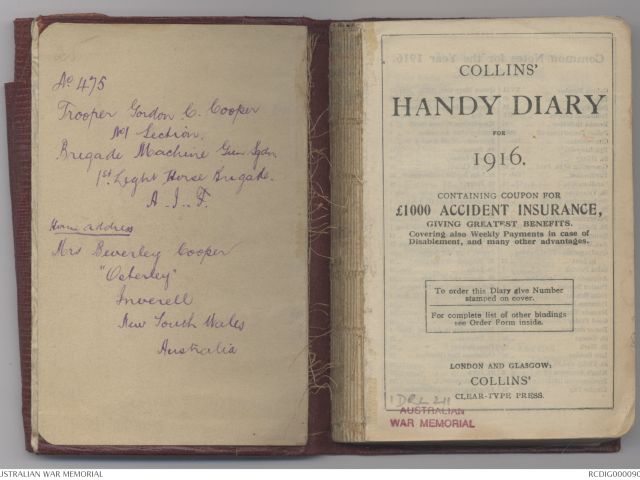 No 475
Trooper Gordon C. Cooper
No1 Section.
Brigade Machine Gun Sqdn
1st Light Horse Brigade.
A.I.F.
Home address
Mrs Beverley Cooper
"Osterley"
Inverell
New South Wales
Australia
COLLINS'
HANDY DIARY
FOR
1916.
CONTAINING COUPON FOR
£1000 ACCIDENT INSURANCE,
GIVING GREATEST BENEFITS.
Covering also Weekly Payments in case of
Disablement, and many other advantages.
To order this Diary give Number
stamped on cover.
For complete list of other bindings
see Order Form inside.
LONDON AND GLASGOW:
COLLINS'
CLEAR-TYPE PRESS.
1 DRL 211
AUSTRALIAN
WAR MEMORIAL
USTRALIAN WAR MEMORIAL
RCDIG000090